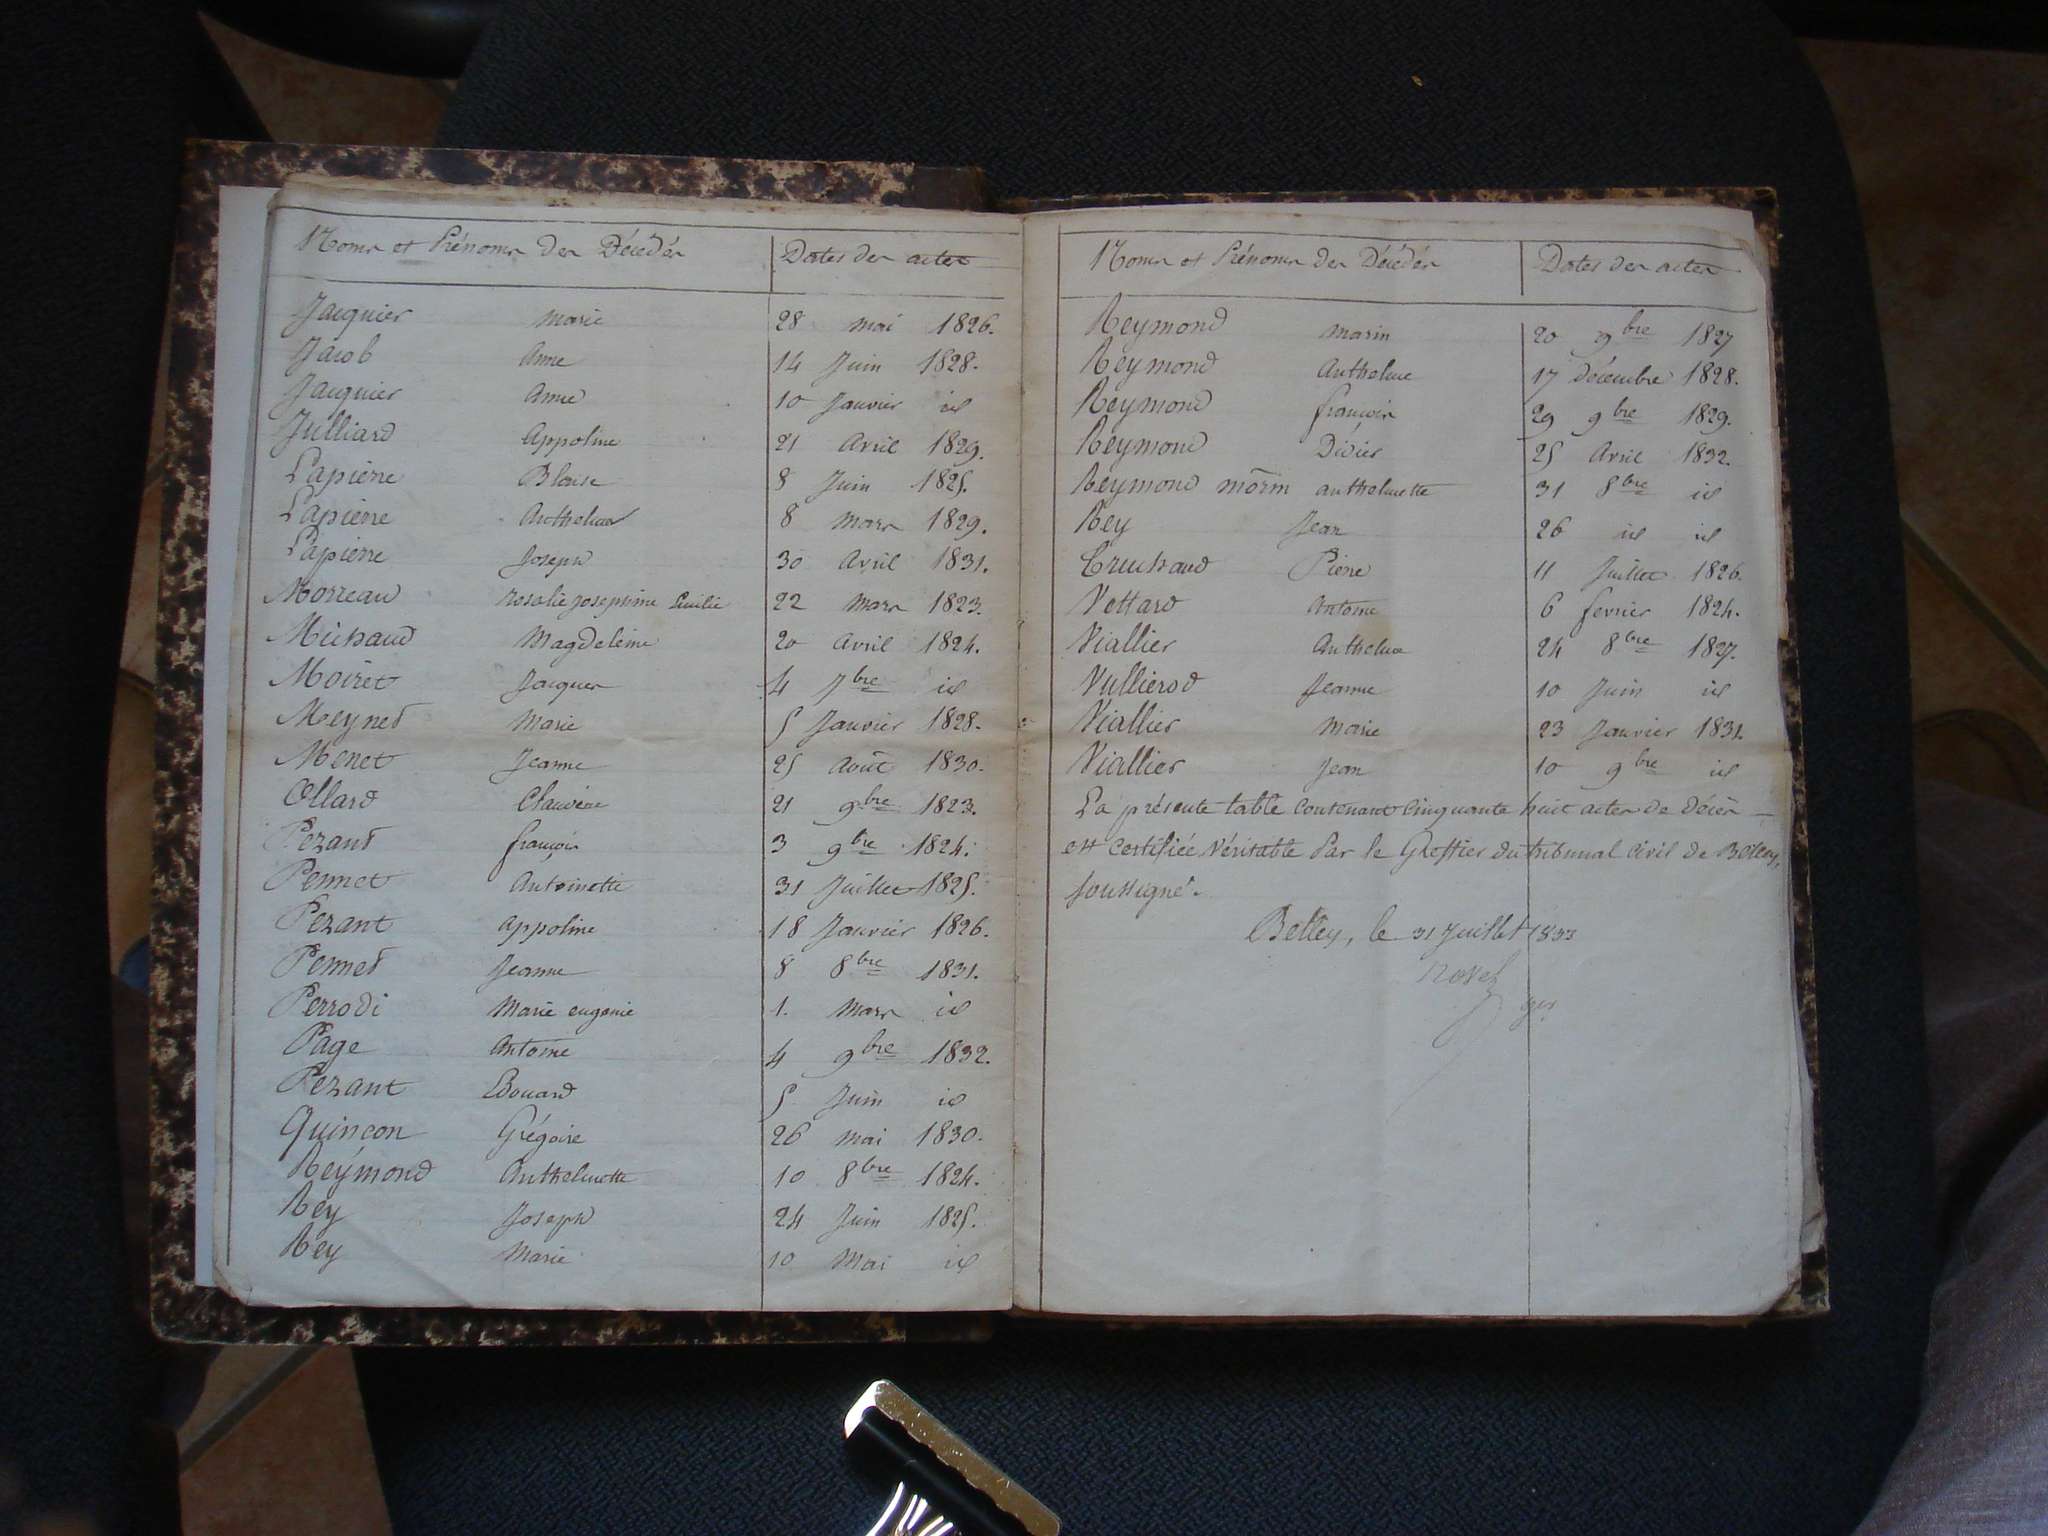 Noms et Prénoms des Décédés Dates des actes
Jacquier marie 28 mai 1826.
Jacob Anne 14 Juin 1828.
Jacquier Anne 10 Janvier id
Julliard Appoline 21 Avril 1829.
Lapierre Blaise 8 Juin 1825.
Lapierre Anthelme 8 mars 1829.
Lapierre Joseph 30 Avril 1831.
Morreau Rosalie Josephine Emilie 22 mars 1823.
Michaud Magdeleine 20 avril 1824.
Moiret Jacques 4 7bre id
Meyned Marie 5 Janvier 1828.
Menet Jeanne 25 Août 1830.
Ollard Claudine 21 9bre 1823.
Pezant françois 3 9bre 1824.
Pennet Antoinette 31 Juillet 1825.
Pezant Appoline 18 Janvier 1826.
Penned Jeanne 8 8bre 1831.
Perrodi Marie eugenie 1. Mars id
Page Antoine 4 9bre 1832.
Pezant Edouard 5 Juin id
Quinson Grégoire 26 mai 1830.
Reymond Anthelmette 10 8bre 1824.
Rey Joseph 24 Juin 1825.
Rey Marie 10 Mai id
Noms et Prénoms des Décédés Dates des actes
Reymond Marin 20 9bre 1827
Reymond Anthelme 17 Décembre 1828.
Reymond françois 29 9bre 1829.
Reymond Didier 25 Avril 1832.
Reymond anthelmette 31 8bre id
Rey Jean 26 id id
Truchaud Pierre 11 Juillet 1826.
Vettard Antoine 6 fevrier 1824.
Viallier Anthelme 24 8bre 1827.
Vullierod Jeanne 10 Juin id
Viallier Marie 23 Janvier 1831.
Viallier Jean 10 9bre id
La présente table contenant cinquante huit actes de Décès
est certifiée Véritable par le Greffier du tribunal Civil de Belley,
soussigné.
Belley, le 31 Juillet 1833